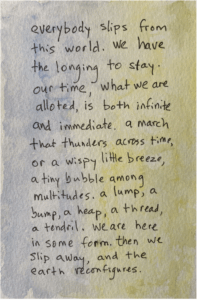 everybody slips from
this world. we have
the longing to stay.
our time, what we are
alloted, is both infinite
and immediate. a march
that thunders across time,
or a wispy little breeze,
a tiny bubble among
multitudes. a lump, a
bump, a heap, a thread,
a tendril. we are here
in some form. then we
slip away, and the
earth reconfigures.